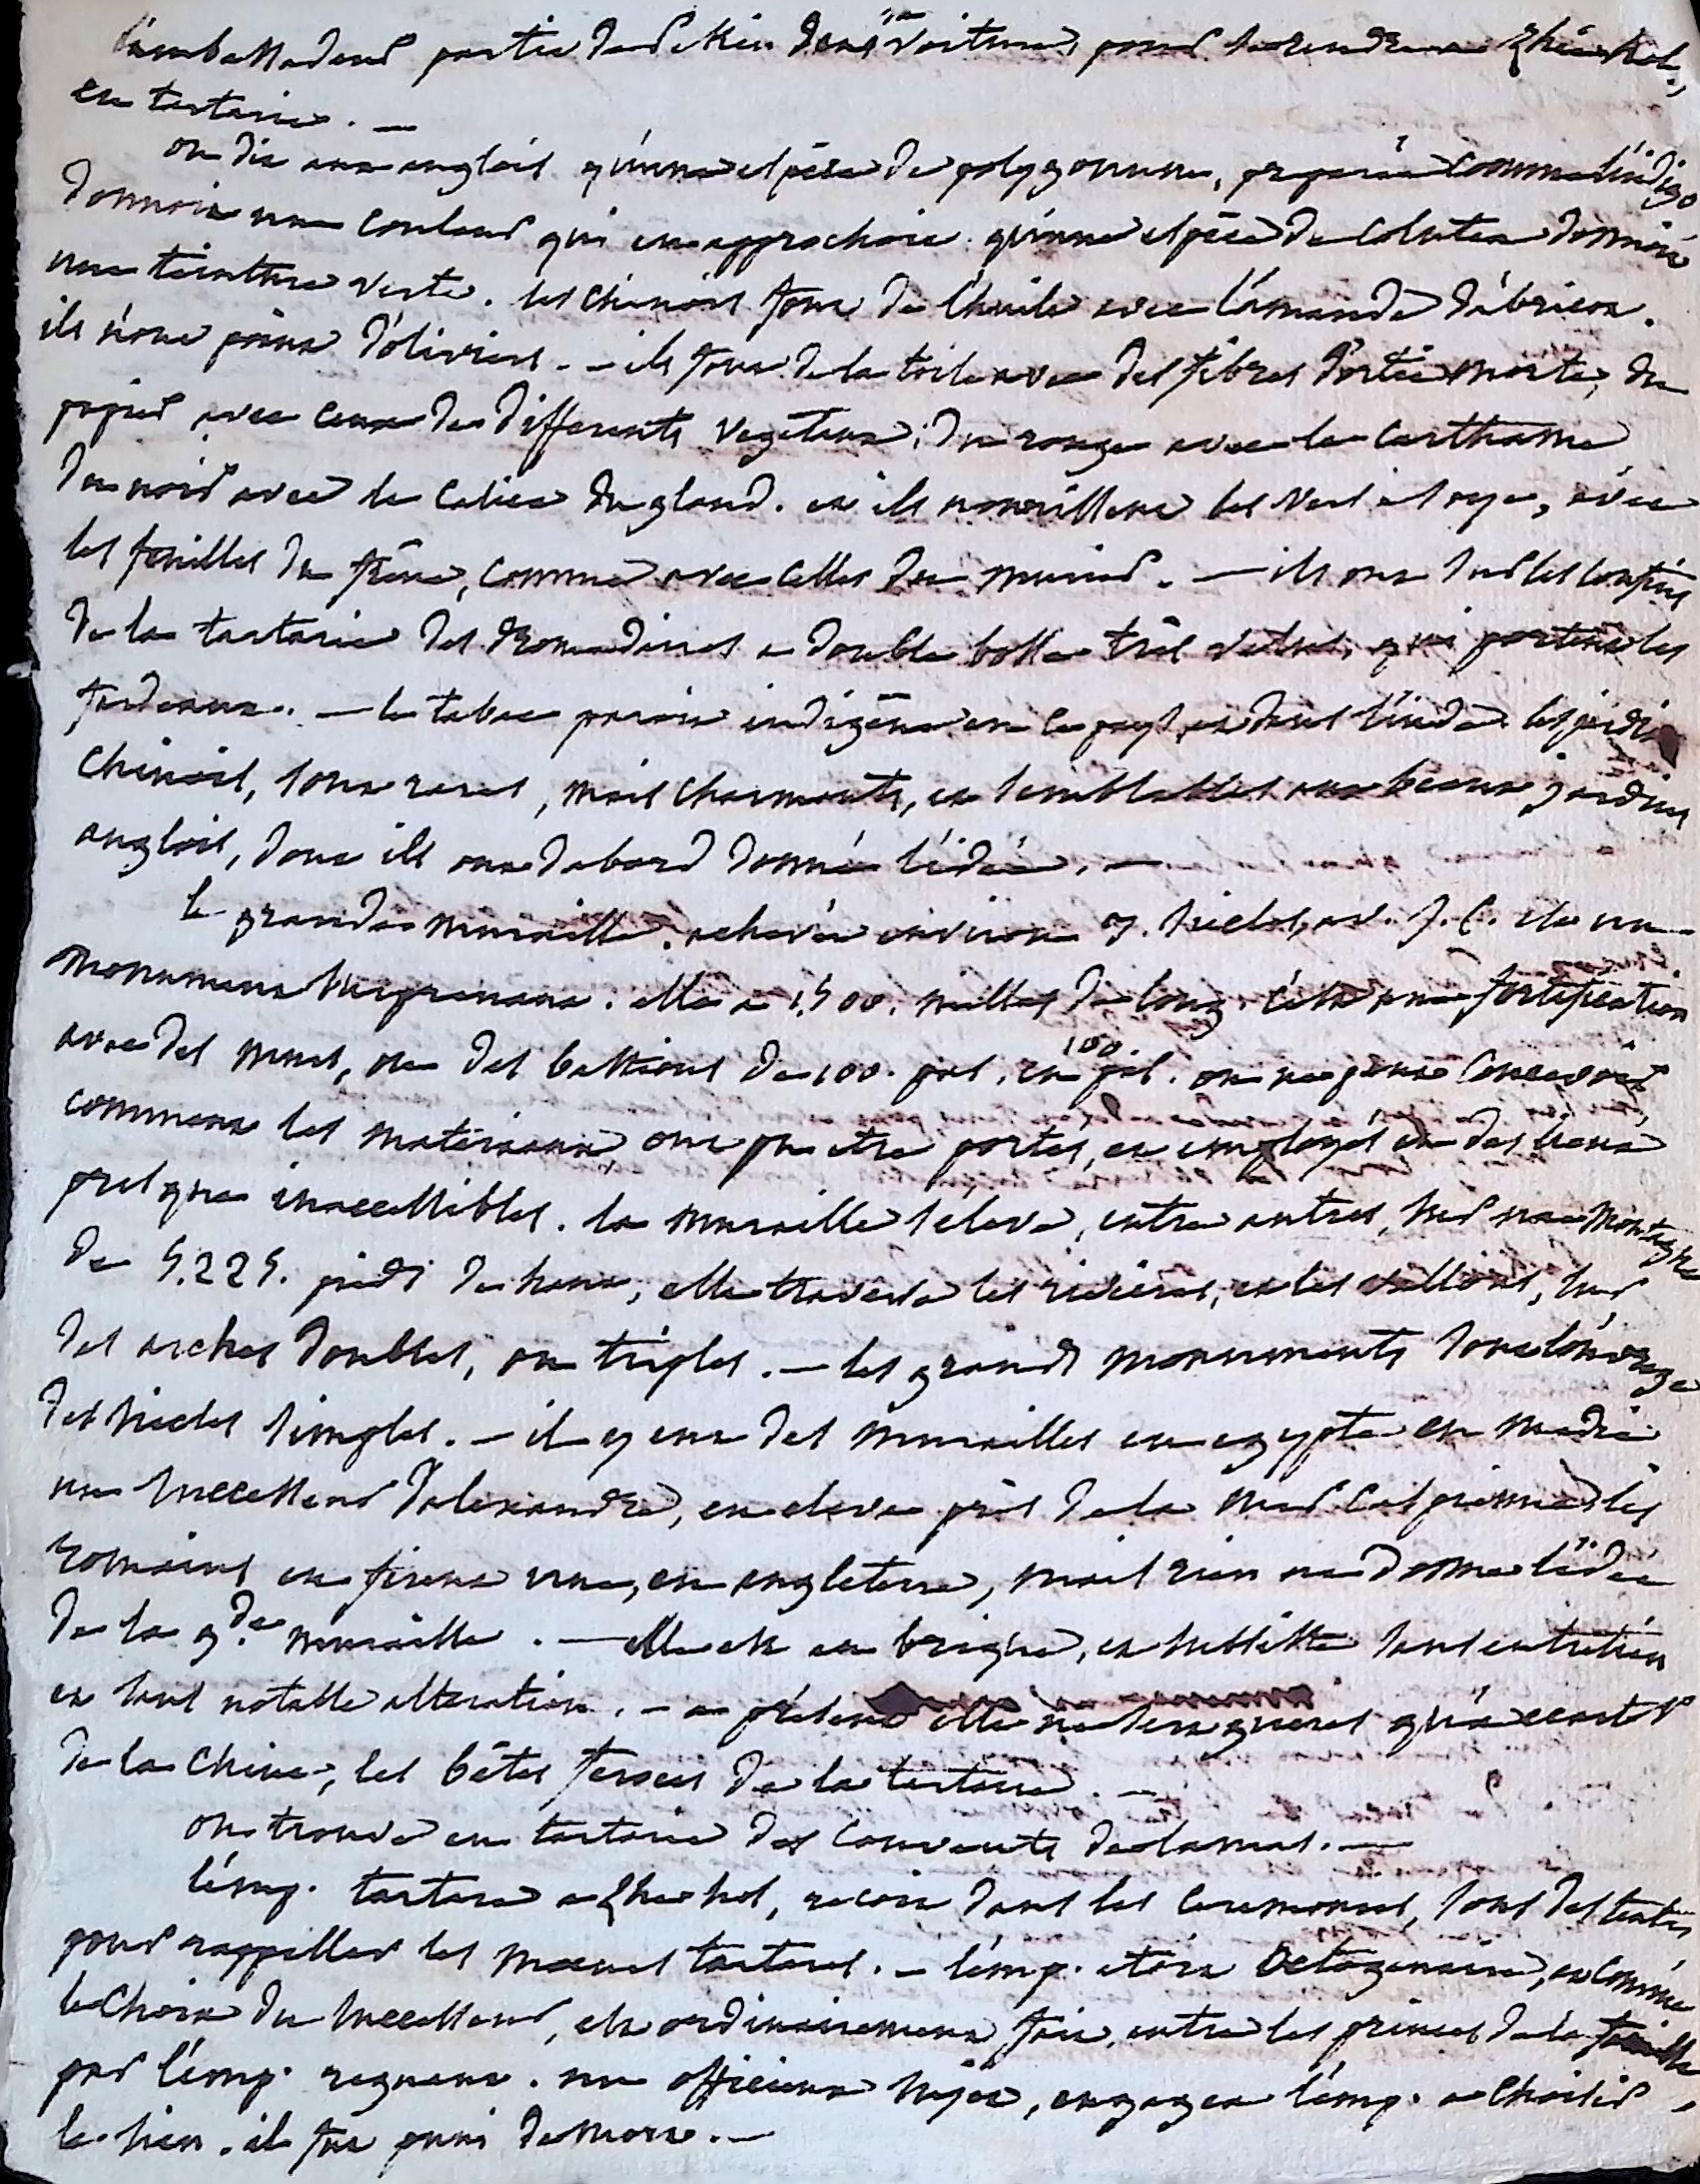 l'ambassadeur partie de Pekin dans sa voiture, pour se rendre a Zhé-hol,
en tartarie. —
on dit aux anglois qu'une espèce de polygonum, preparée comme l'indigo
donnoit une couleur qui en approchoit. qu'une espèce de colutea donnoit
une teinture verte. les chinois font de l'huile avec l'amande d'abricot.
ils n'ont point d'oliviers. — ils font de la toile avec des fibres d'ortie morte, du
papier avec ceux de differents vegetaux; du rouge avec le carthame
du noir avec le calice du gland. et ils nourissent les vers a soye, avec
les feuilles du frêne, comme avec celles du murier. — ils ont sur les confins
de la tartarie des dromadaires a double bosse très velus, qui portent les
fardeaux. — le tabac paroit indigène en ce pays, et dans l'inde. les jardins
chinois, sont rares, mais charmants, et semblables aux beaux jardins
anglois, dont ils ont d'abord donné l'idée. —
la grande muraille, achevée environ 3. siecles, av. J. C. est un
monument surprenant. elle a 1,500. milles de long. c'est une fortification
avec des murs, et des bastions de 100. pas, en 100 pas. on ne peut concevoir
comment les materiaux, ont pu etre portés, et employés en des lieux
presque inaccessibles. la muraille s'eleve, entre autres, sur une montagne
de 5.225. pieds de haut; elle traverse les rivières, et les vallons, sur
des arches doubles, ou triples. — les grands monuments sont l'ouvrage
des siecles simples. — il y eut des murailles en egypte en medie
un successeur d'alexandre, en eleva près de la mer caspienne les
romains en firent une, en angleterre, mais rien ne donne l'idée
de la gde muraille. — elle est en brique, et subsiste sans entretien
et sans notable alteration. — a présent elle ne sert gueres qu'a ecarter
de la chine, les bêtes feroces de la tartarie. —
on trouve en tartarie des couvents de lamas. —
l'emp. tartare a Zhe hol, recoit dans les ceremonies, sous des tentes
pour rappeller les moeurs tartares. — l'emp. etoit octogenaire, et comme
le choix du successeur, est ordinairement fait, entre les princes de la famille
par l'emp. regnant. un officieux sujet, engagea l'emp. a choisir
le sien. il fut puni de mort. —